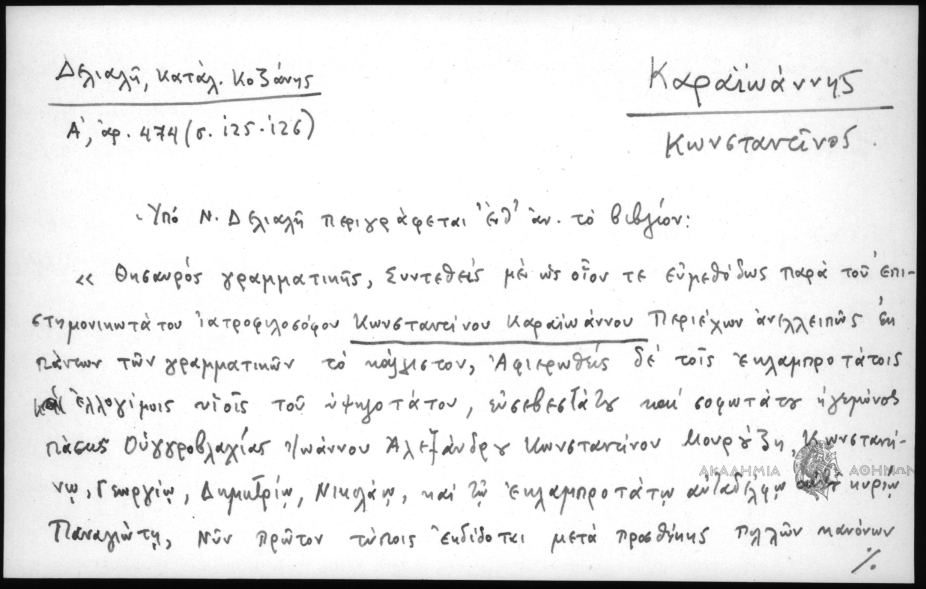 Δελιαλῆ, Κατάλ. Κοζάνης
Α', ἀρ. 474 (σ. 125-126)
Καραϊωάννης
Κωνσταντῖνος
Ὑπό Ν. Δελιαλῆ περιγράφεται ἐνθ' ἀν. τό βιβλίον:
« Θησαυρός γραμματικῆς, Συντεθείς μέν ὡς οἷον τε εὐμεθόδως παρά τοῦ ἐπι-
στημονικωτάτου ἰατροφιλοσόφου Κωνσταντίνου Καραϊωάννου Περιέχων ἀνελλειπῶς ἐκ
πάντων τῶν γραμματικῶν τό κάλλιστον, Ἀφιερωθείς δέ τοῖς ἐκλαμπροτάτοις
καί ἐλλογίμοις υἱοῖς τοῦ ὑψηλοτάτου, εὐσεβεστάτου καί σοφωτάτου ἡγεμόνος
πάσης Οὐγγροβλαχίας Ἰωάννου Ἀλεξάνδρου Κωνσταντίνου Μουρούζη, Κωνσταντί-
νῳ, Γεωργίῳ, Δημητρίῳ, Νικολάῳ, καί τῷ ἐκλαμπροτάτῳ αὐταδέλφῳ κυρίῳ
Παναγιώτῃ, Νῦν πρῶτον τύποις ἐκδίδοται μετά προσθήκης πολλῶν κανόνων
%
ΑΚΑΔΗΜΙΑ ΑΘΗΝΩΝ